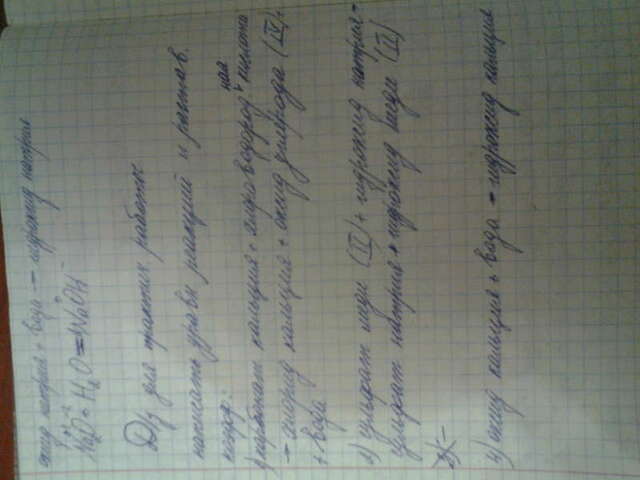 оксид натрия + вода – гидроксид натрия
Na2O + H2O = NaOH
Д/з для практич работы
написать уравн реакций и расстав.
коэфф:
1) карбонат кальция + хлороводородная кислота
– хлорид кальция + оксид углерода (IV) +
+ вода
2) сульфат меди (II) + гидроксид натрия –
сульфат натрия + гидроксид меди (II)
3) оксид кальция + вода – гидроксид кальция